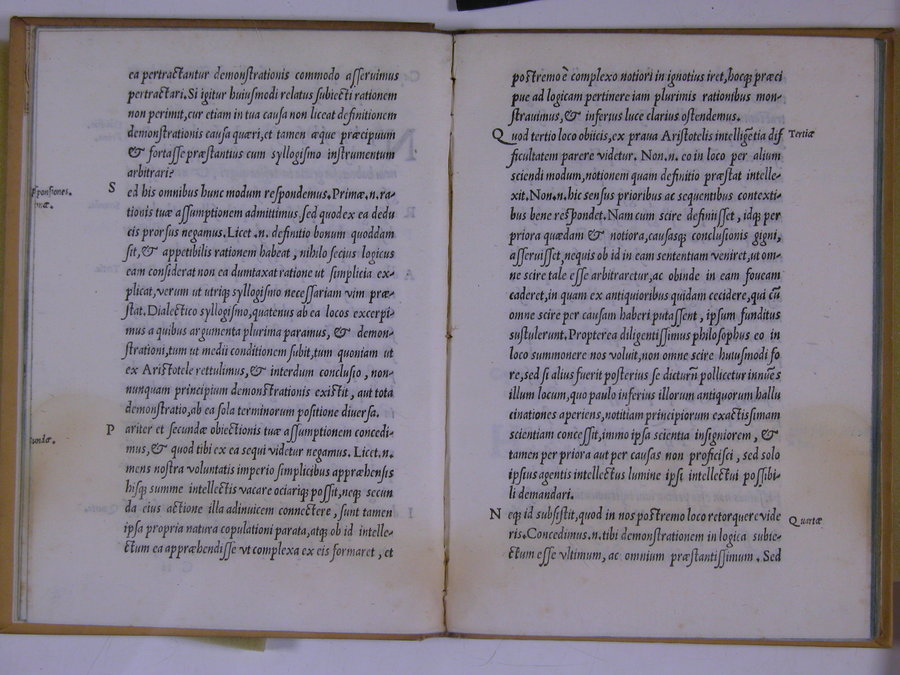 ea pertractantur demonstrationis commodo asseruimus
pertractari. Si igitur huiusmodi relatus subiecti rationem
non perimit, cur etiam in tua causa non liceat definitionem
demonstrationis causa quæri, et tamen æque præcipuum
& fortasse præstantius cum syllogismo instrumentum
arbitrari?
Sed his omnibus hunc modum respondemus. Primæ .n. ra-
tionis tuæ assumptionem admittimus, sed quod ex ea dedu
cis prorsus negamus. Licet .n. definitio bonum quoddam
sit, & appetibilis rationem habeat, nihilo secius logicus
eam considerat non ea dumtaxat ratione ut simplicia ex-
plicat, verum ut utriq; syllogismo necessariam vim præ-
stat. Dialectico syllogismo, quatenus ab ea locos excerpi-
mus a quibus argumenta plurima paramus, & demon-
strationi, tum ut medii conditionem subit, tum quoniam ut
ex Aristotele rettulimus, & interdum conclusio, non-
nunquam principium demonstrationis existit, aut tota
demonstratio, ab ea sola terminorum positione diuersa.
Pariter et secundæ obiectionis tuæ assumptionem concedi-
mus, & quod tibi ex ea sequi videtur negamus. Licet .n.
mens nostra voluntatis imperio simplicibus appræhensis
hisq; summe intellectis vacare ociariq; possit, neq; secun
da eius actione illa adinuicem connectere, sunt tamen
ipsa propria natura copulationi parata, atq; ob id intelle-
ctum ea appræhendisse vt complexa ex eis formaret, et
sponsiones.
mæ.
undæ.
postremo è complexo notiori in ignotius iret, hocq; præci
pue ad logicam pertinere iam plurimis rationibus mon-
strauimus, & inferius luce clarius ostendemus.
Quod tertio loco obiicis, ex praua Aristotelis intelligẽtia dif
ficultatem parere videtur. Non .n. eo in loco per alium
sciendi modum, notionem quam definitio præstat intelle-
xit. Non .n. hic sensus prioribus ac sequentibus contexti-
bus bene respondet. Nam cum scire definisset, idq; per
priora quædam & notiora, causasq; conclusionis gigni,
asseruisset, nequis ob id in eam sententiam veniret, ut om-
ne scire tale esse arbitraretur, ac obinde in eam foueam
caderet, in quam ex antiquioribus quidam cecidere, qui cũ
omne scire per causam haberi putassent, ipsum funditus
sustulerunt. Propterea diligentissimus philosophus eo in
loco summonere nos voluit, non omne scire huiusmodi fo
re, sed si alius fuerit posterius se dicturũ pollicetur innuẽs
illum locum, quo paulo inferius illorum antiquorum hallu
cinationes aperiens, notitiam principiorum exactissimam
scientiam concessit, immo ipsa scientia insigniorem, &
tamen per priora aut per causas non proficisci, sed solo
ipsius agentis intellectus lumine ipsi intellectui possibi-
li demandari.
Neq; id subsistit, quod in nos postremo loco retorquere vide
ris. Concedimus .n. tibi demonstrationem in logica subie-
ctum esse vltimum, ac omnium præstantissimum. Sed
Tertiæ
Quartæ